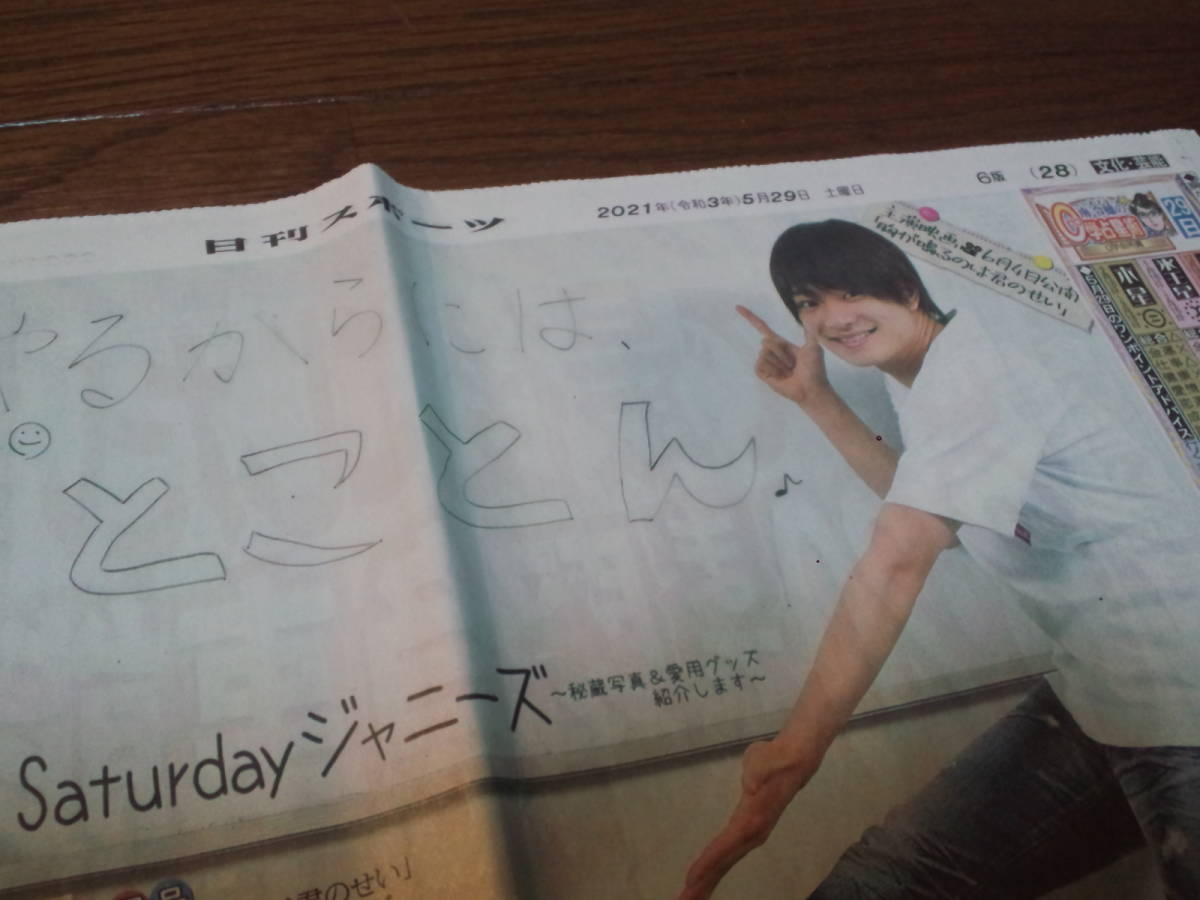 日刊スポーツ
2021年(令和3年)5月29日 土曜日
6版 (28) 文化・芸能
主演映画、6月4日公開
「胸が鳴るのは君のせい」
29日
小吉
やるからには、
とことん♪
Saturdayジャニーズ
～秘蔵写真&愛用グッズ
紹介します～
君のせい」
品